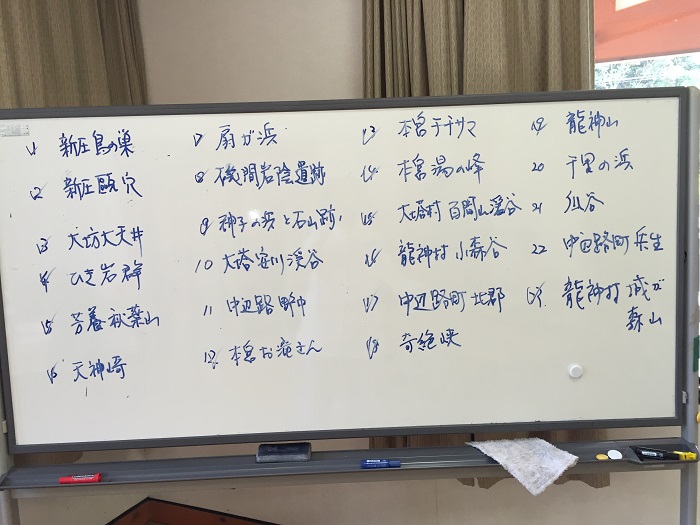 1 新庄鳥の巣
2 新庄甌穴
3 大坊大天井
4 ひき岩群
5 芳養秋葉山
6 天神崎
7 扇が浜
8 磯間岩陰遺跡
9 神子の浜と石山跡
10 大塔安川渓谷
11 中辺路野中
12 本宮お滝さん
13 本宮チチサマ
14 本宮湯の峰
15 大塔村百間山渓谷
16 龍神村小森谷
17 中辺路町北郡
18 奇絶峡
19 龍神山
20 千里の浜
21 仙谷
22 中辺路町兵生
23 龍神村城が
森山